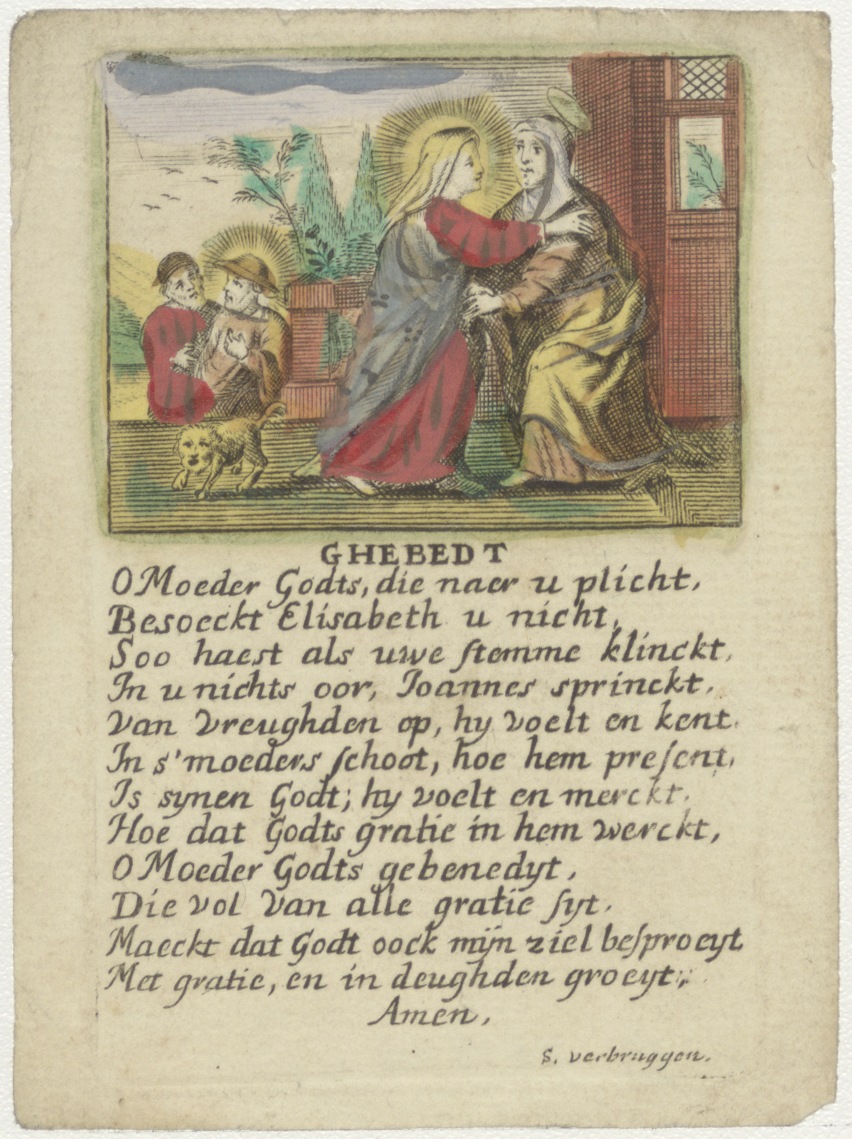 GHEBEDT
O Moeder Godts, die naer u plicht,
Besoeckt Elisabeth u nicht,
Soo haest als uwe ſtemme klinckt,
In u nichts oor, Ioannes sprinckt,
Van Vreughden op, hy voelt en kent.
In s'moeders ſchoot, hoe hem preſent,
Is synen Godt; hy voelt en merckt.
Hoe dat Godts gratie in hem werckt,
O Moeder Godts gebenedyt,
Die vol Van alle gratie ſyt.
Maeckt dat Godt oock mijn ziel beſproeyt
Met gratie, en in deughden groeyt;
Amen,
S. verbruggen.